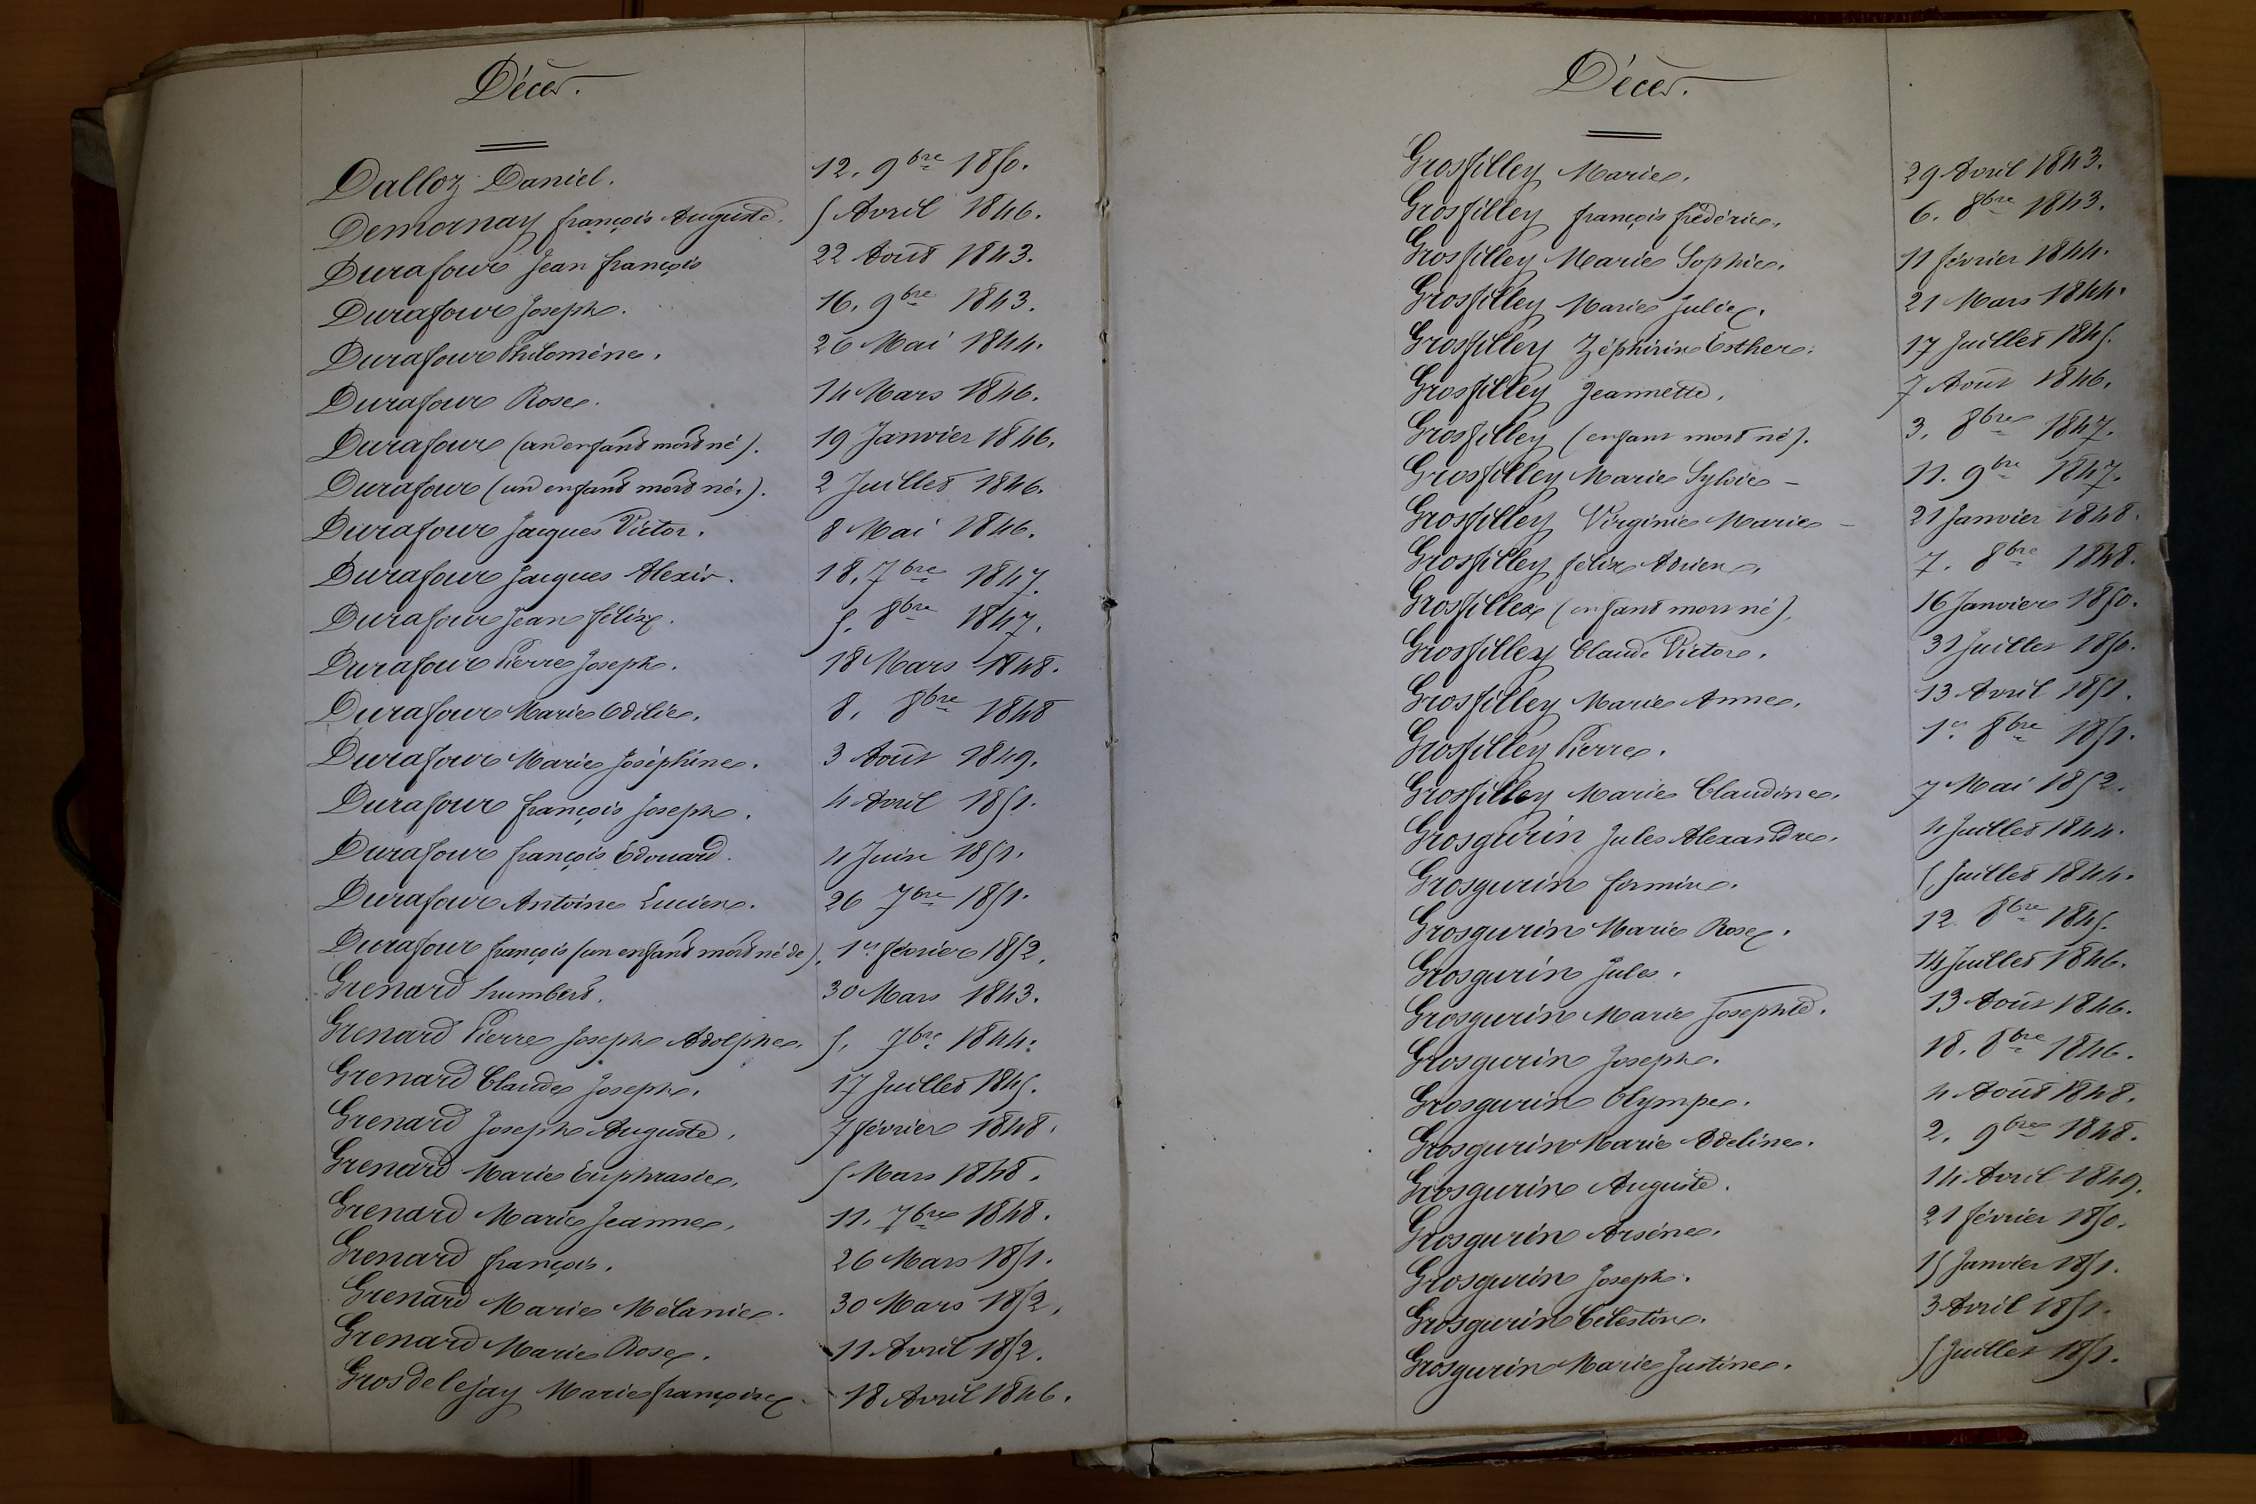 Décès.
Dalloz Daniel. 12. 9bre 1850.
Demornay françois Auguste. 5 Avril 1846.
Durafour Jean françois 22 Août 1843.
Durafour Joseph. 16. 9bre 1843.
Durafour Philomène. 26 Mai 1844.
Durafour Rose. 14 Mars 1846.
Durafour (un enfant mort né). 19 Janvier 1846.
Durafour (un enfant mort né.). 2 Juillet 1846.
Durafour Jacques Victor. 8 Mai 1846.
Durafour Jacques Alexis. 18. 7bre 1847.
Durafour Jean félix. 5. 8bre 1847.
Durafour Pierre Joseph. 18 Mars 1848.
Durafour Marie Odilie. 8. 8bre 1848
Durafour Marie Joséphine. 3 Août 1849.
Durafour françois Joseph. 4 Avril 1851.
Durafour françois Édouard. 4 Juin 1851.
Durafour Antoine Lucien. 26 7bre 1851.
Durafour françois (un enfant mort né de). 1er février 1852.
Grenard humbert. 30 Mars 1843.
Grenard Pierre Joseph Adolphe. 5. 7bre 1844.
Grenard Claude Joseph. 17 Juillet 1845.
Grenard Joseph Auguste. 7 février 1848.
Grenard Marie Euphrasie. 5 Mars 1848.
Grenard Marie Jeanne. 11. 7bre 1848.
Grenard françois. 26 Mars 1851.
Grenard Marie Mélanie. 30 Mars 1852.
Grenard Marie Rose. 11 Avril 1852.
Grosdelejay Marie françoise. 18 Avril 1846.
Décès.
Grosfilley Marie. 29 Avril 1843.
Grosfilley françois frédéric. 6. 8bre 1843.
Grosfilley Marie Sophie. 11 février 1844.
Grosfilley Marie Julie. 21 Mars 1844.
Grosfilley Zéphirin Esther. 17 Juillet 1845.
Grosfilley Jeannette. 7 Août 1846.
Grosfilley (enfant mort né). 3. 8bre 1847.
Grosfilley Marie Sylvie - 11. 9bre 1847.
Grosfilley Virginie Marie - 21 Janvier 1848.
Grosfilley félix Adrien. 7. 8bre 1848.
Grosfillex (enfant mort né). 16 Janvier 1850.
Grosfilley Claude Victor. 31 Juillet 1850.
Grosfilley Marie Anne. 13 Avril 1851.
Grosfilley Pierre. 1er 8bre 1851.
Grosfilley Marie Claudine. 7 Mai 1852.
Grosgurin Jules Alexandre. 4 Juillet 1844.
Grosgurin firmin. 5 Juillet 1844.
Grosgurin Marie Rose. 12 8bre 1845.
Grosgurin Jules. 14 Juillet 1846.
Grosgurin Marie Josephte. 13 Août 1846.
Grosgurin Joseph. 18. 8bre 1846.
Grosgurin Olympe. 4 Août 1848.
Grosgurin Marie Adeline. 2. 9bre 1848.
Grosgurin Auguste. 14 Avril 1849.
Grosgurin Arsène. 21 février 1850.
Grosgurin Joseph. 15 Janvier 1851.
Grosgurin Célestin. 3 Avril 1851.
Grosgurin Marie Justine. 5 Juillet 1851.